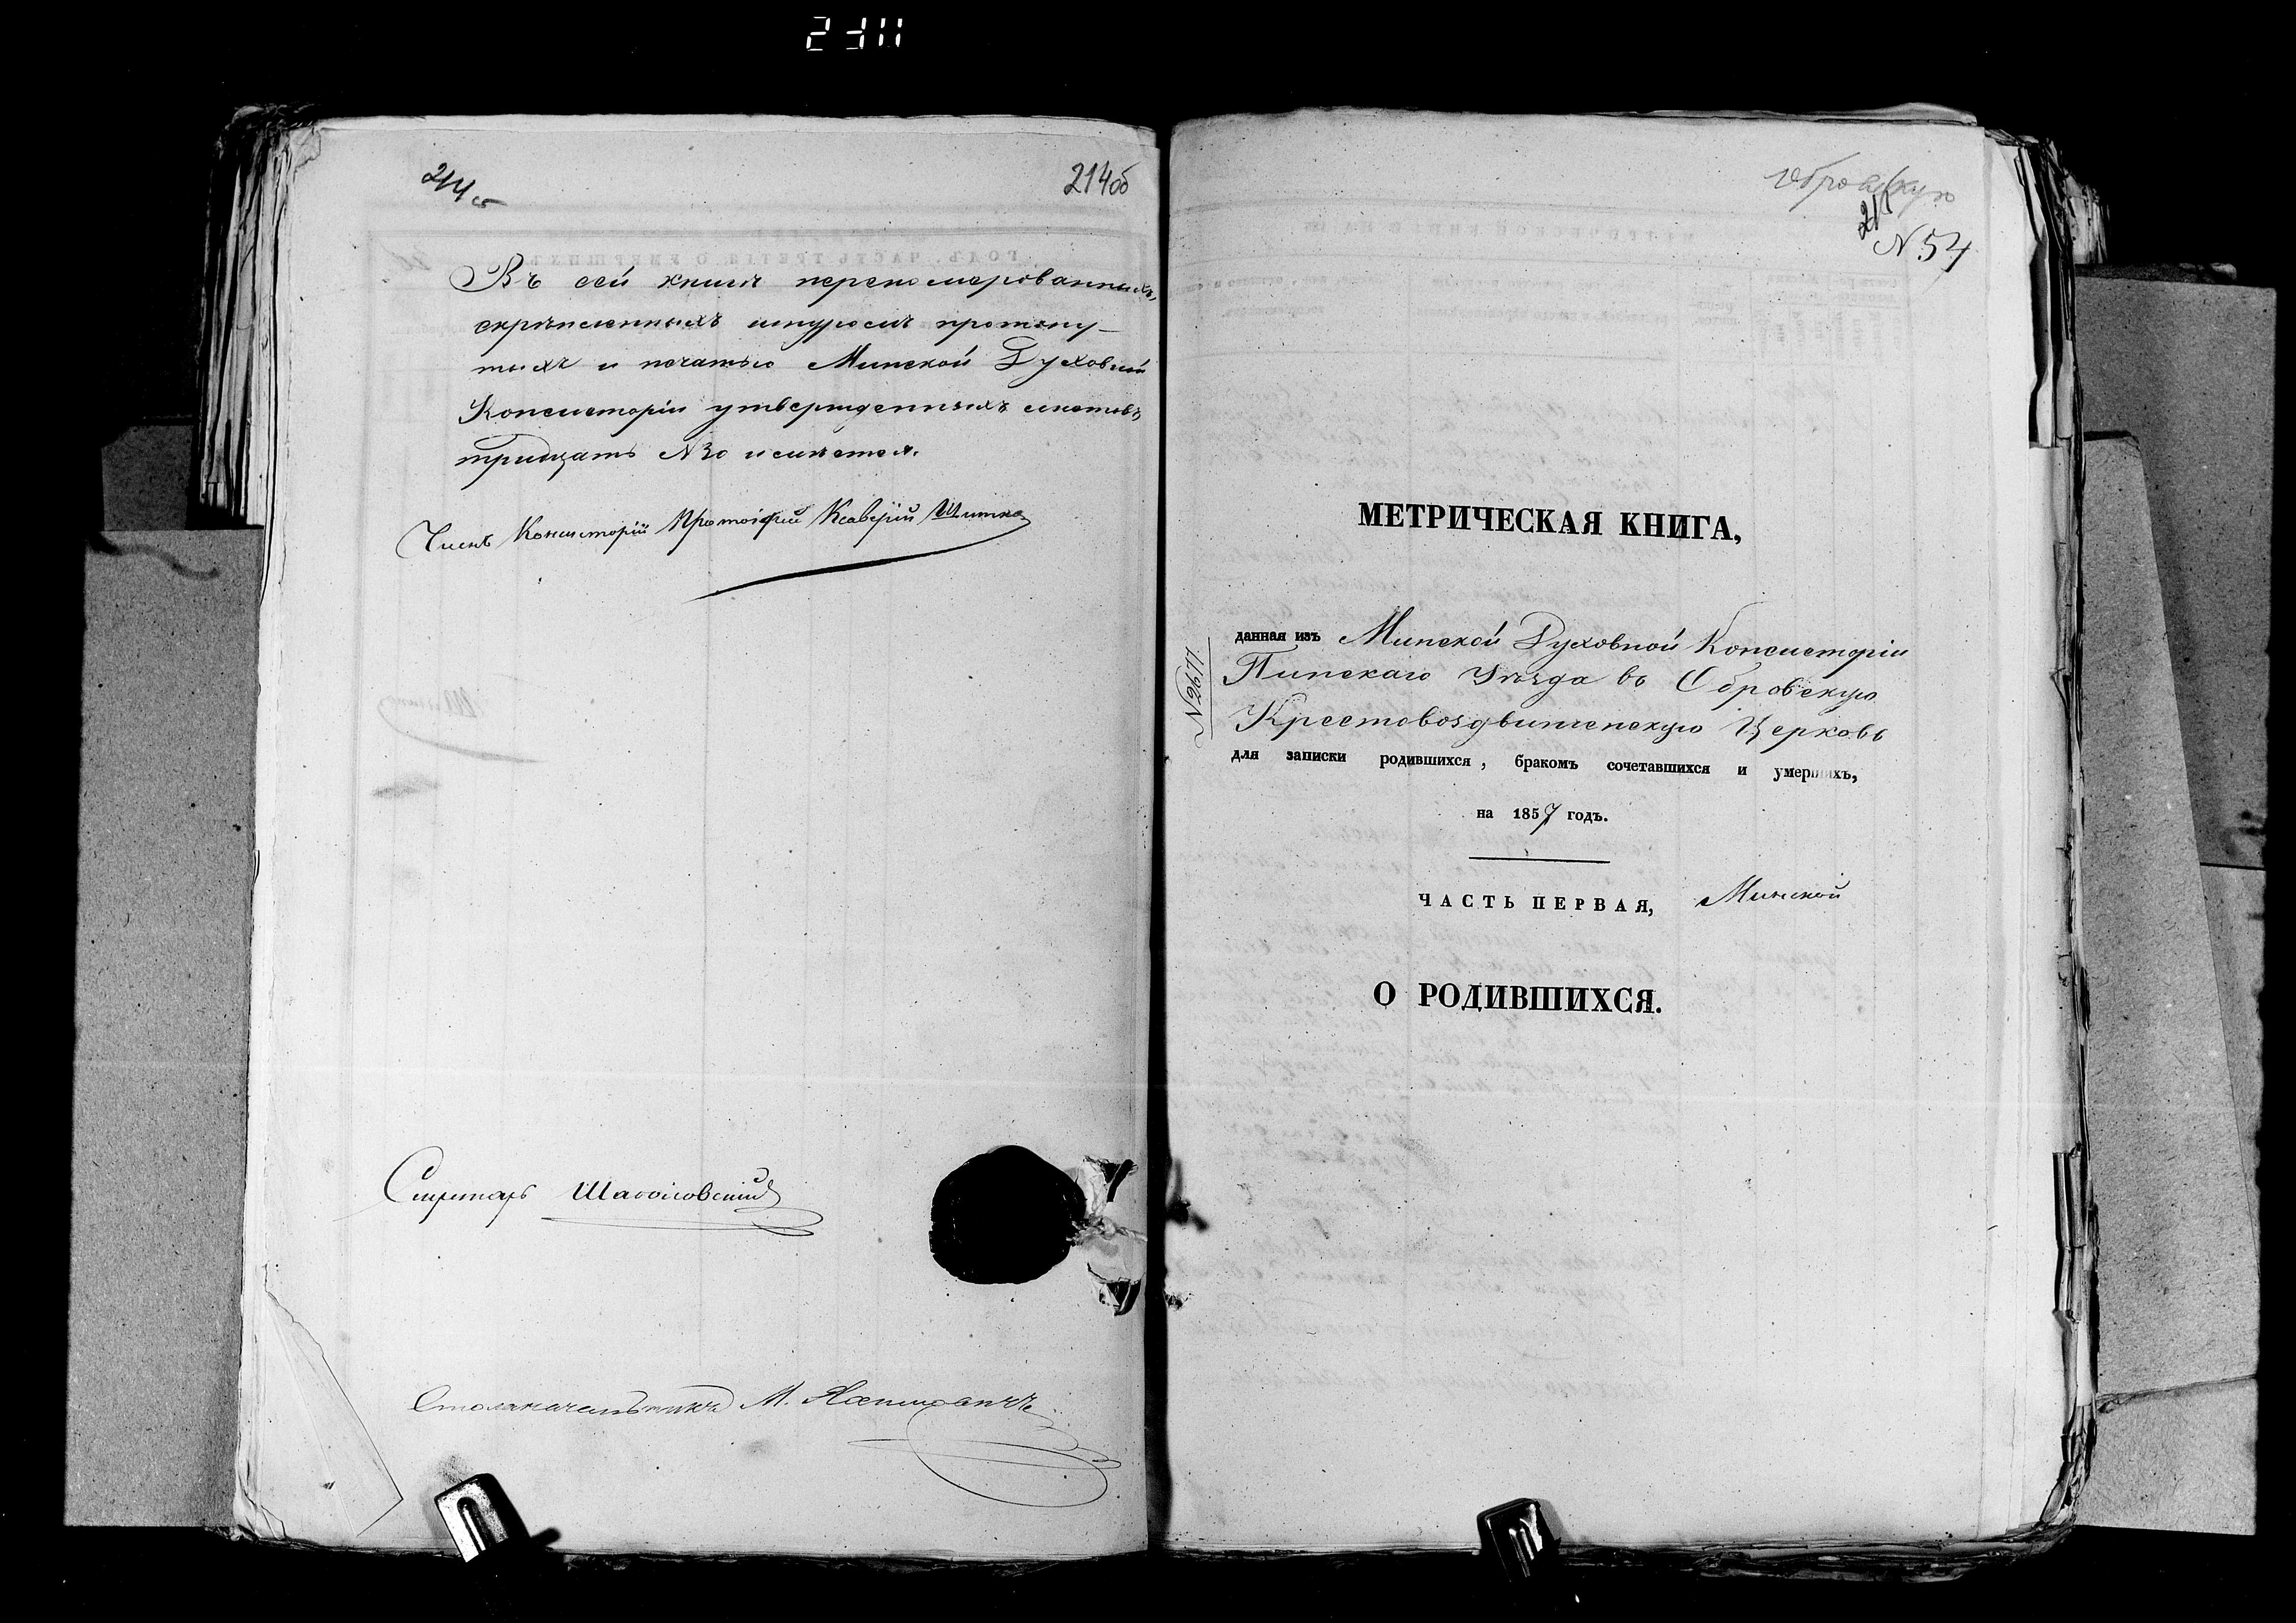 214об
214об
Въ сей книгѣ перенумерованныхъ,
скрѣпленныхъ шнуромъ протяну-
тыхъ и печатью Минской Духовной
Консисторіи утвержденныхъ листовъ
тридцать №30 числится.
Членъ Консисторіи Протоіерей Ксаверій Шитко
Секретарь
Столоначальникъ М. Яхимовичъ
Обровскую
№ 54
МЕТРИЧЕСКАЯ КНИГА,
№2677.
данная изъ Минской Духовной Консисторіи
Пинскаго Уѣзда въ Обровскую
Крестовоздвиженскую Церковь
для записки родившихся, бракомъ сочетавшихся и умершихъ,
на 1857 годъ.
ЧАСТЬ ПЕРВАЯ, Минской
О РОДИВШИХСЯ.